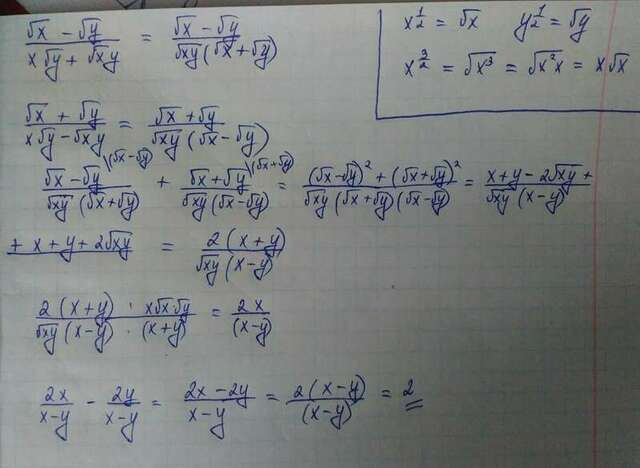 (√x − √y)/(x√y + √xy) = (√x − √y)/(√xy(√x + √y))
x^(1/2) = √x    y^(1/2) = √y
x^(3/2) = √x³ = √x²x = x√x
(√x + √y)/(x√y − √xy) = (√x + √y)/(√xy(√x − √y))
(√x − √y)/(√xy(√x + √y)) \(√x − √y) + (√x + √y)/(√xy(√x − √y)) \(√x + √y) = ((√x − √y)² + (√x + √y)²)/(√xy(√x + √y)(√x − √y)) = (x + y − 2√xy +)/(√xy(x − y))
+ x + y + 2√xy = 2(x + y)/(√xy(x − y))
2(x + y)/(√xy(x − y)) · x√x·√y/(x + y) = 2x/(x − y)
2x/(x − y) − 2y/(x − y) = (2x − 2y)/(x − y) = 2(x − y)/(x − y) = 2